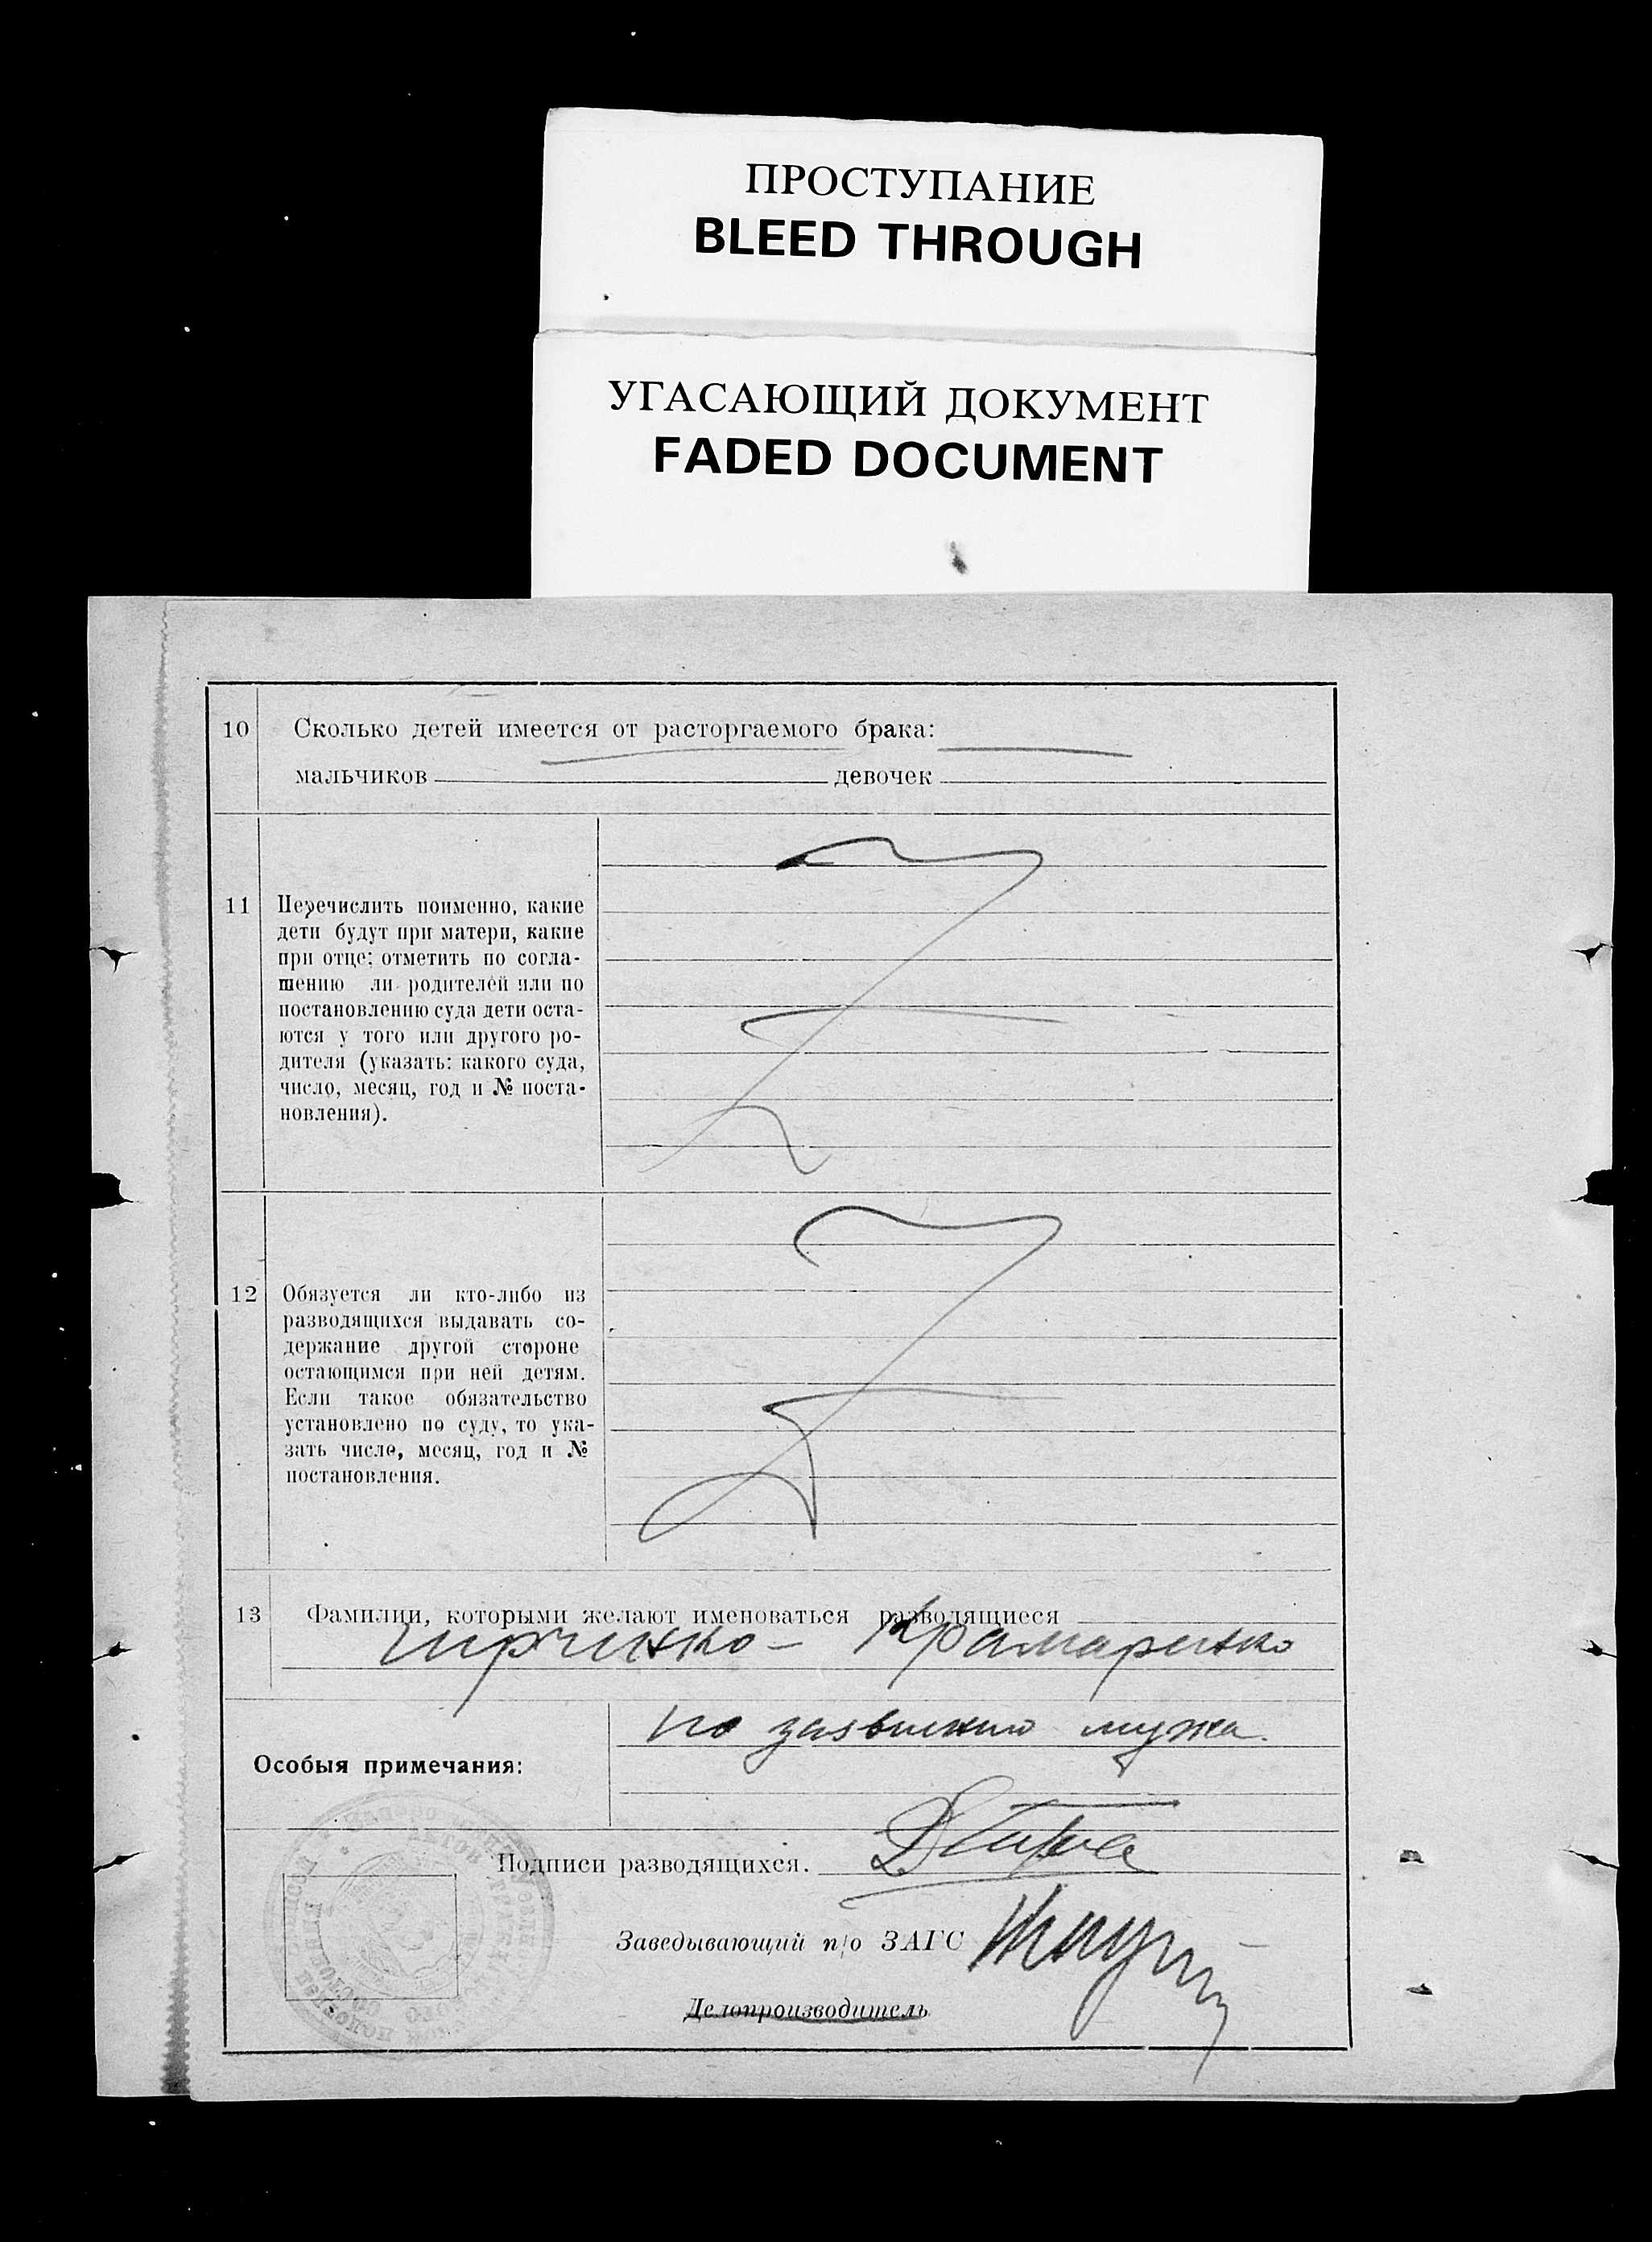 ПРОСТУПАНИЕ
BLEED THROUGH
УГАСАЮЩИЙ ДОКУМЕНТ
FADED DOCUMENT
10 Сколько детей имеется от расторгаемого брака:
мальчиков девочек
11 Перечислить поименно, какие
дети будут при матери, какие
при отце; отметить по согла-
шению ли родителей или по
постановлению суда дети оста-
ются у того или другого ро-
дителя (указать: какого суда,
число, месяц, год и № поста-
новления).
12 Обязуется ли кто-либо из
разводящихся выдавать со-
держание другой стороне
остающимся при ней детям.
Если такое обязательство
установлено по суду, то ука-
зать число, месяц, год и №
постановления.
13 Фамилии, которыми желают именоваться разводящиеся
Крамаренко
по заявлению мужа.
Особыя примечания:
Подписи разводящихся.
Заведывающий п/о ЗАГС
Делопроизводитель